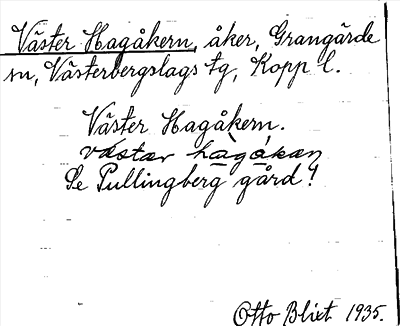 Väster Hagåkern, åker, Grangärde
sn, Västerbergslags tg, Kopp l.
Väster Hagåkern.
västar hagåkan
Se Pullingberg gård!
Otto Blixt 1935.